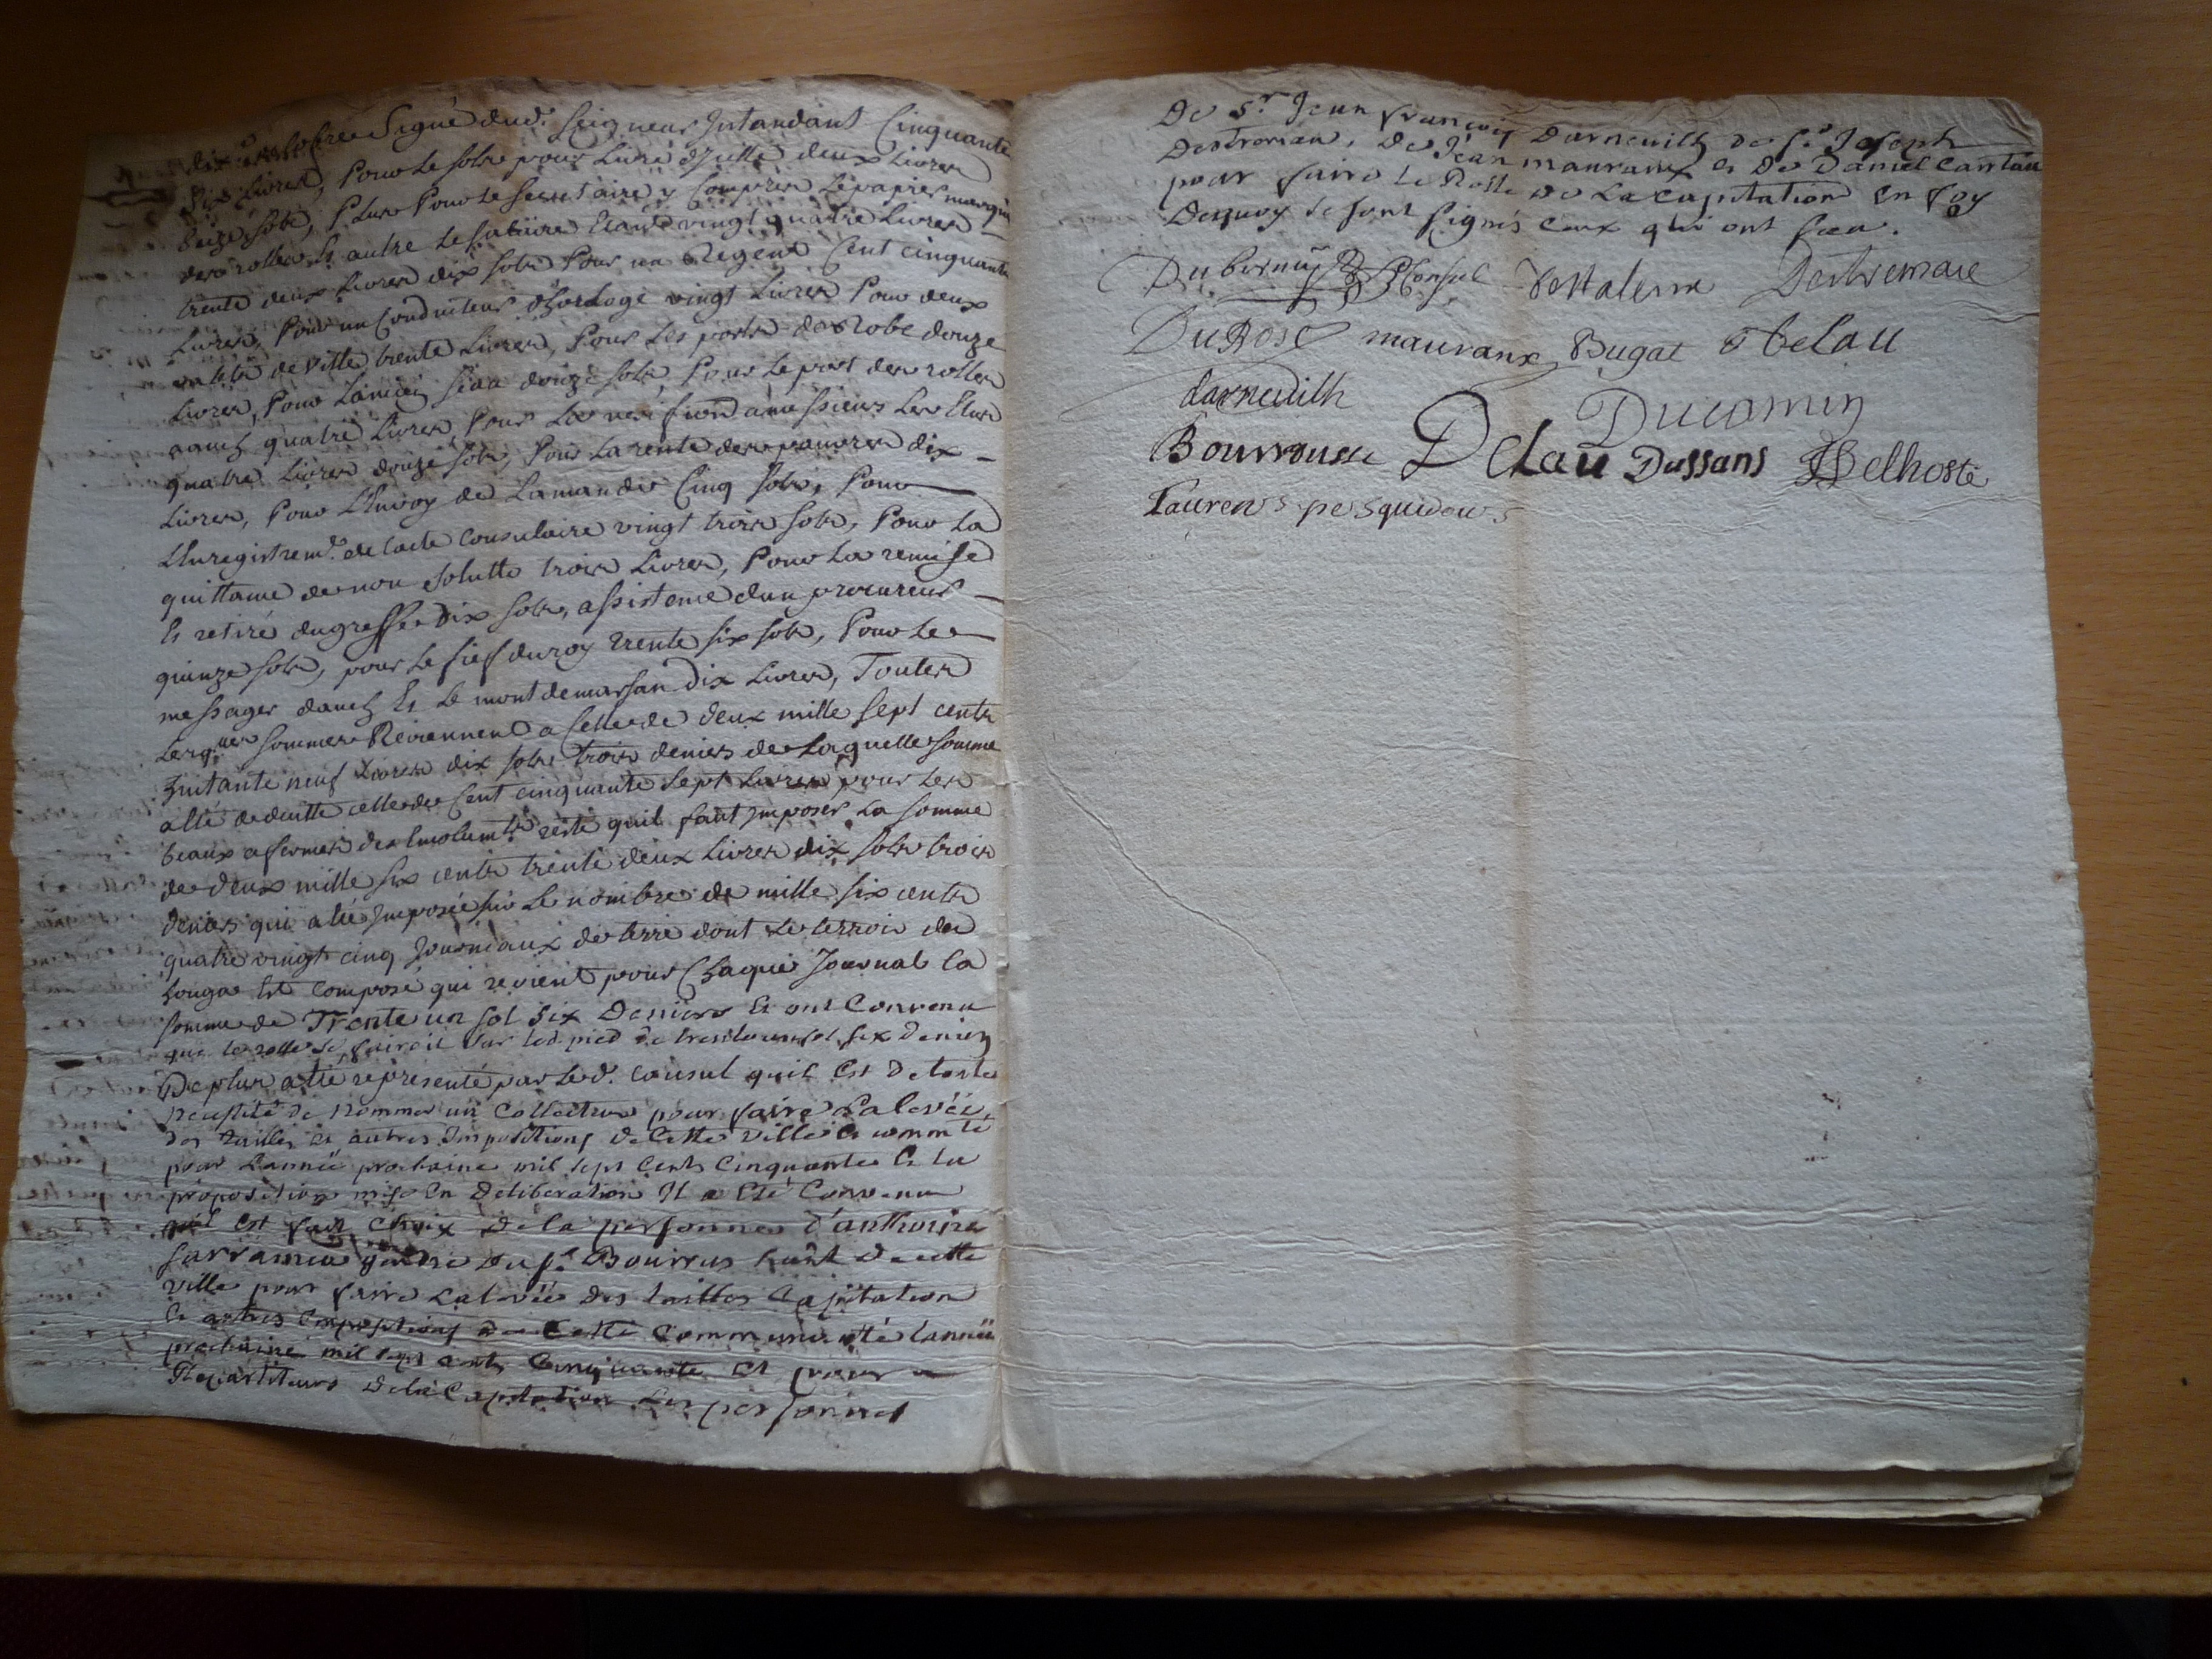 dix octobre Signé dud. Seigneur Intandant Cinquante
Six Livres, Pour le sols pour Livre dIcelle deux Livres
seize sols, Plus Pour le Secretaire y Compres Le papier marqué
des rolles Et autre le salaire Et autre vingt quatre Livres
trente deux Livres dix sols Pour un Regent Cent cinquante
Livres, Pour un Conduiteur dhorloge vingt Livres Pour deux
valets de Ville trente Livres, Pour les ports de Robe douze
Livres, Pour douze sols, Pour le port des rolles
dauch quatre Livres Pour La a messieurs Les Elus
quatre Livres douze sols, Pour La rente des pauvres dix
Livres, Pour Lenvoy de Lamande Cinq sols, Pour
LEnregistremt. de Lacte Consulaire vingt trois sols, Pour La
quittance de non solutto trois Livres, Pour La remise
Et retiré du greffe Dix sols, assistence dun procureur
quinze sols, pour Le fief du roy trente six sols, Pour Le
messager dauch Et Le mont de marsan Dix Livres, Toutes
Lesqles sommes Reviennent a Celle de deux mille sept cents
huitante neuf Livres dix sols trois deniers de Laquelle somme
a été deduitte celle de Cent cinquante sept Livres pour les
beaux a fermes des Emolumts reste quil faut Imposer La somme
de deux mille six cents trente deux Livres dix sols trois
deniers qui a été Imposée sur Le nombre de mille six cents
quatre vingts cinq Journaux de terre dont Le terroir du
houga Est Composé qui revient pour Chaque Journal La
somme de Trente un sol Six Deniers Et ont Convenu
que le rolle se fairoit sur led. pied de trente un sol six deniers
De plus a été representé par Led. Consul quil Est De toute
necessité de Nommer un Collecteur pour faire La levée
des tailles et autres Impositions de Cette ville Et commté
pour Lannée prochaine mil sept Cents Cinquante Et La
proposition mise En Deliberation Il a Eté Convenu
quil Est fait Choix de la personne d'anthoine
Sarramea gendre du Sr. Bourrus hant de cette
ville pour faire La levée des tailles Capitation
Et autres Impositions de Cette Communauté Lannée
prochaine mil sept cents Cinquante Et pour
Repartiteurs de la Capitation Les personnes
De Sr. Jean françois Darneuilh de Sr. Joseph
Destremau, de Jean mauraux Et De Daniel Cantau
pour faire Le Rolle de La Capitation En foy
Dequoy se sont signés Ceux qui ont sceu.
Duberniy Consul Destremau
DuBosc mauraux Bugat Delau
darneuilh Ducomin
Bourrousse Delau Dussans Delhoste
Laurens pesquidous